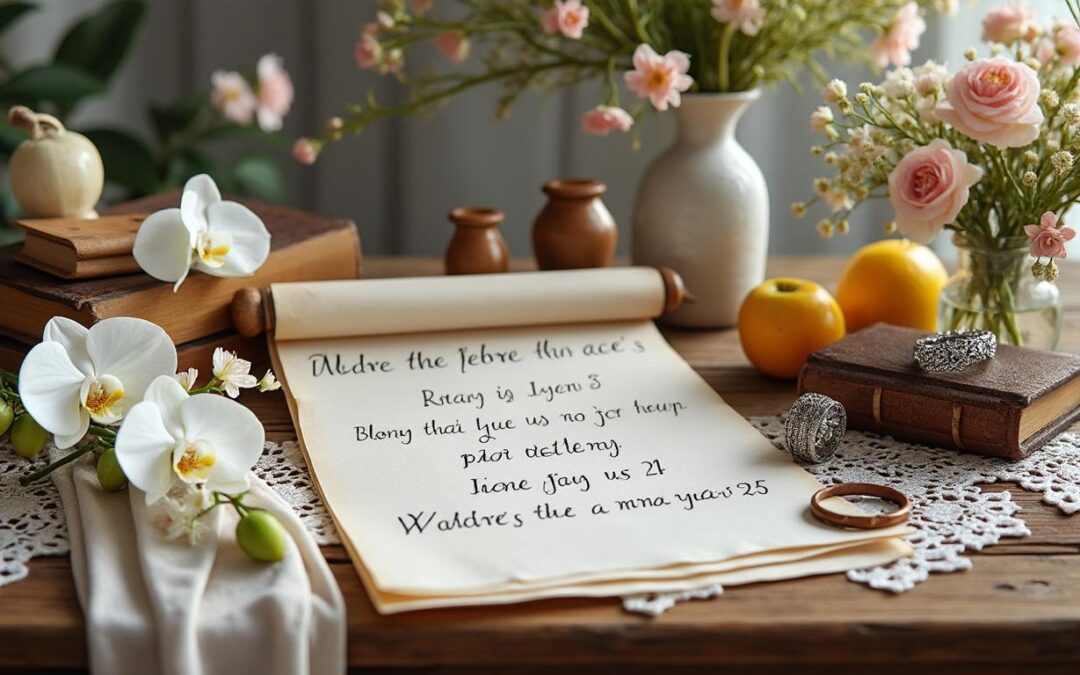 Aldre the febre thn ace's
Rrary is Lyerr 3
Blony thai lyue us no jor heup.
plot aetlemy.
Jione fay us 21
Waldre's the a mna yuars 25